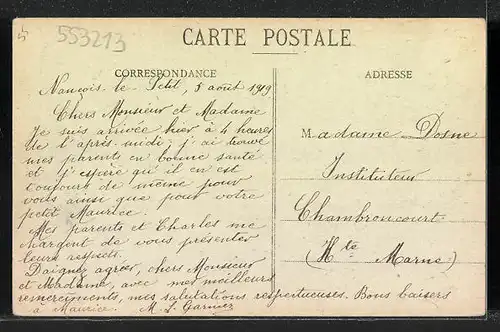 553213
CARTE POSTALE
CORRESPONDANCE
Nançois-le-Petit, 5 août 1919
Chers Monsieur et Madame
Je suis arrivée hier à 4 heures
de l'après-midi; j'ai trouvé
mes parents en bonne santé
et j'espère qu'il en est
toujours de même pour
vous ainsi que pour votre
petit Maurice.
Mes parents et Charles me
chargent de vous présenter
leurs respects.
Daignez agréer, chers Monsieur
et Madame, avec mes meilleurs
remerciments, mes salutations respectueuses. Bons baisers
à Maurice. M. L. Garnier
ADRESSE
Madame Dosne
Instituteur
Chambroncourt
(Hte Marne)